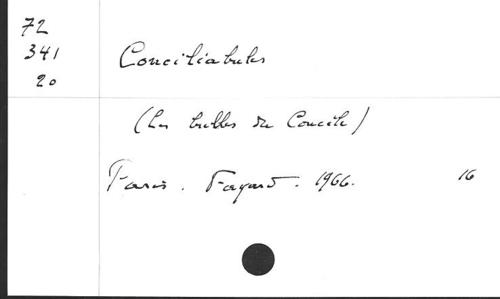 72
341
20
Conciliabules
(Les bulles du Concile)
Paris. Fayard. 1966. 16